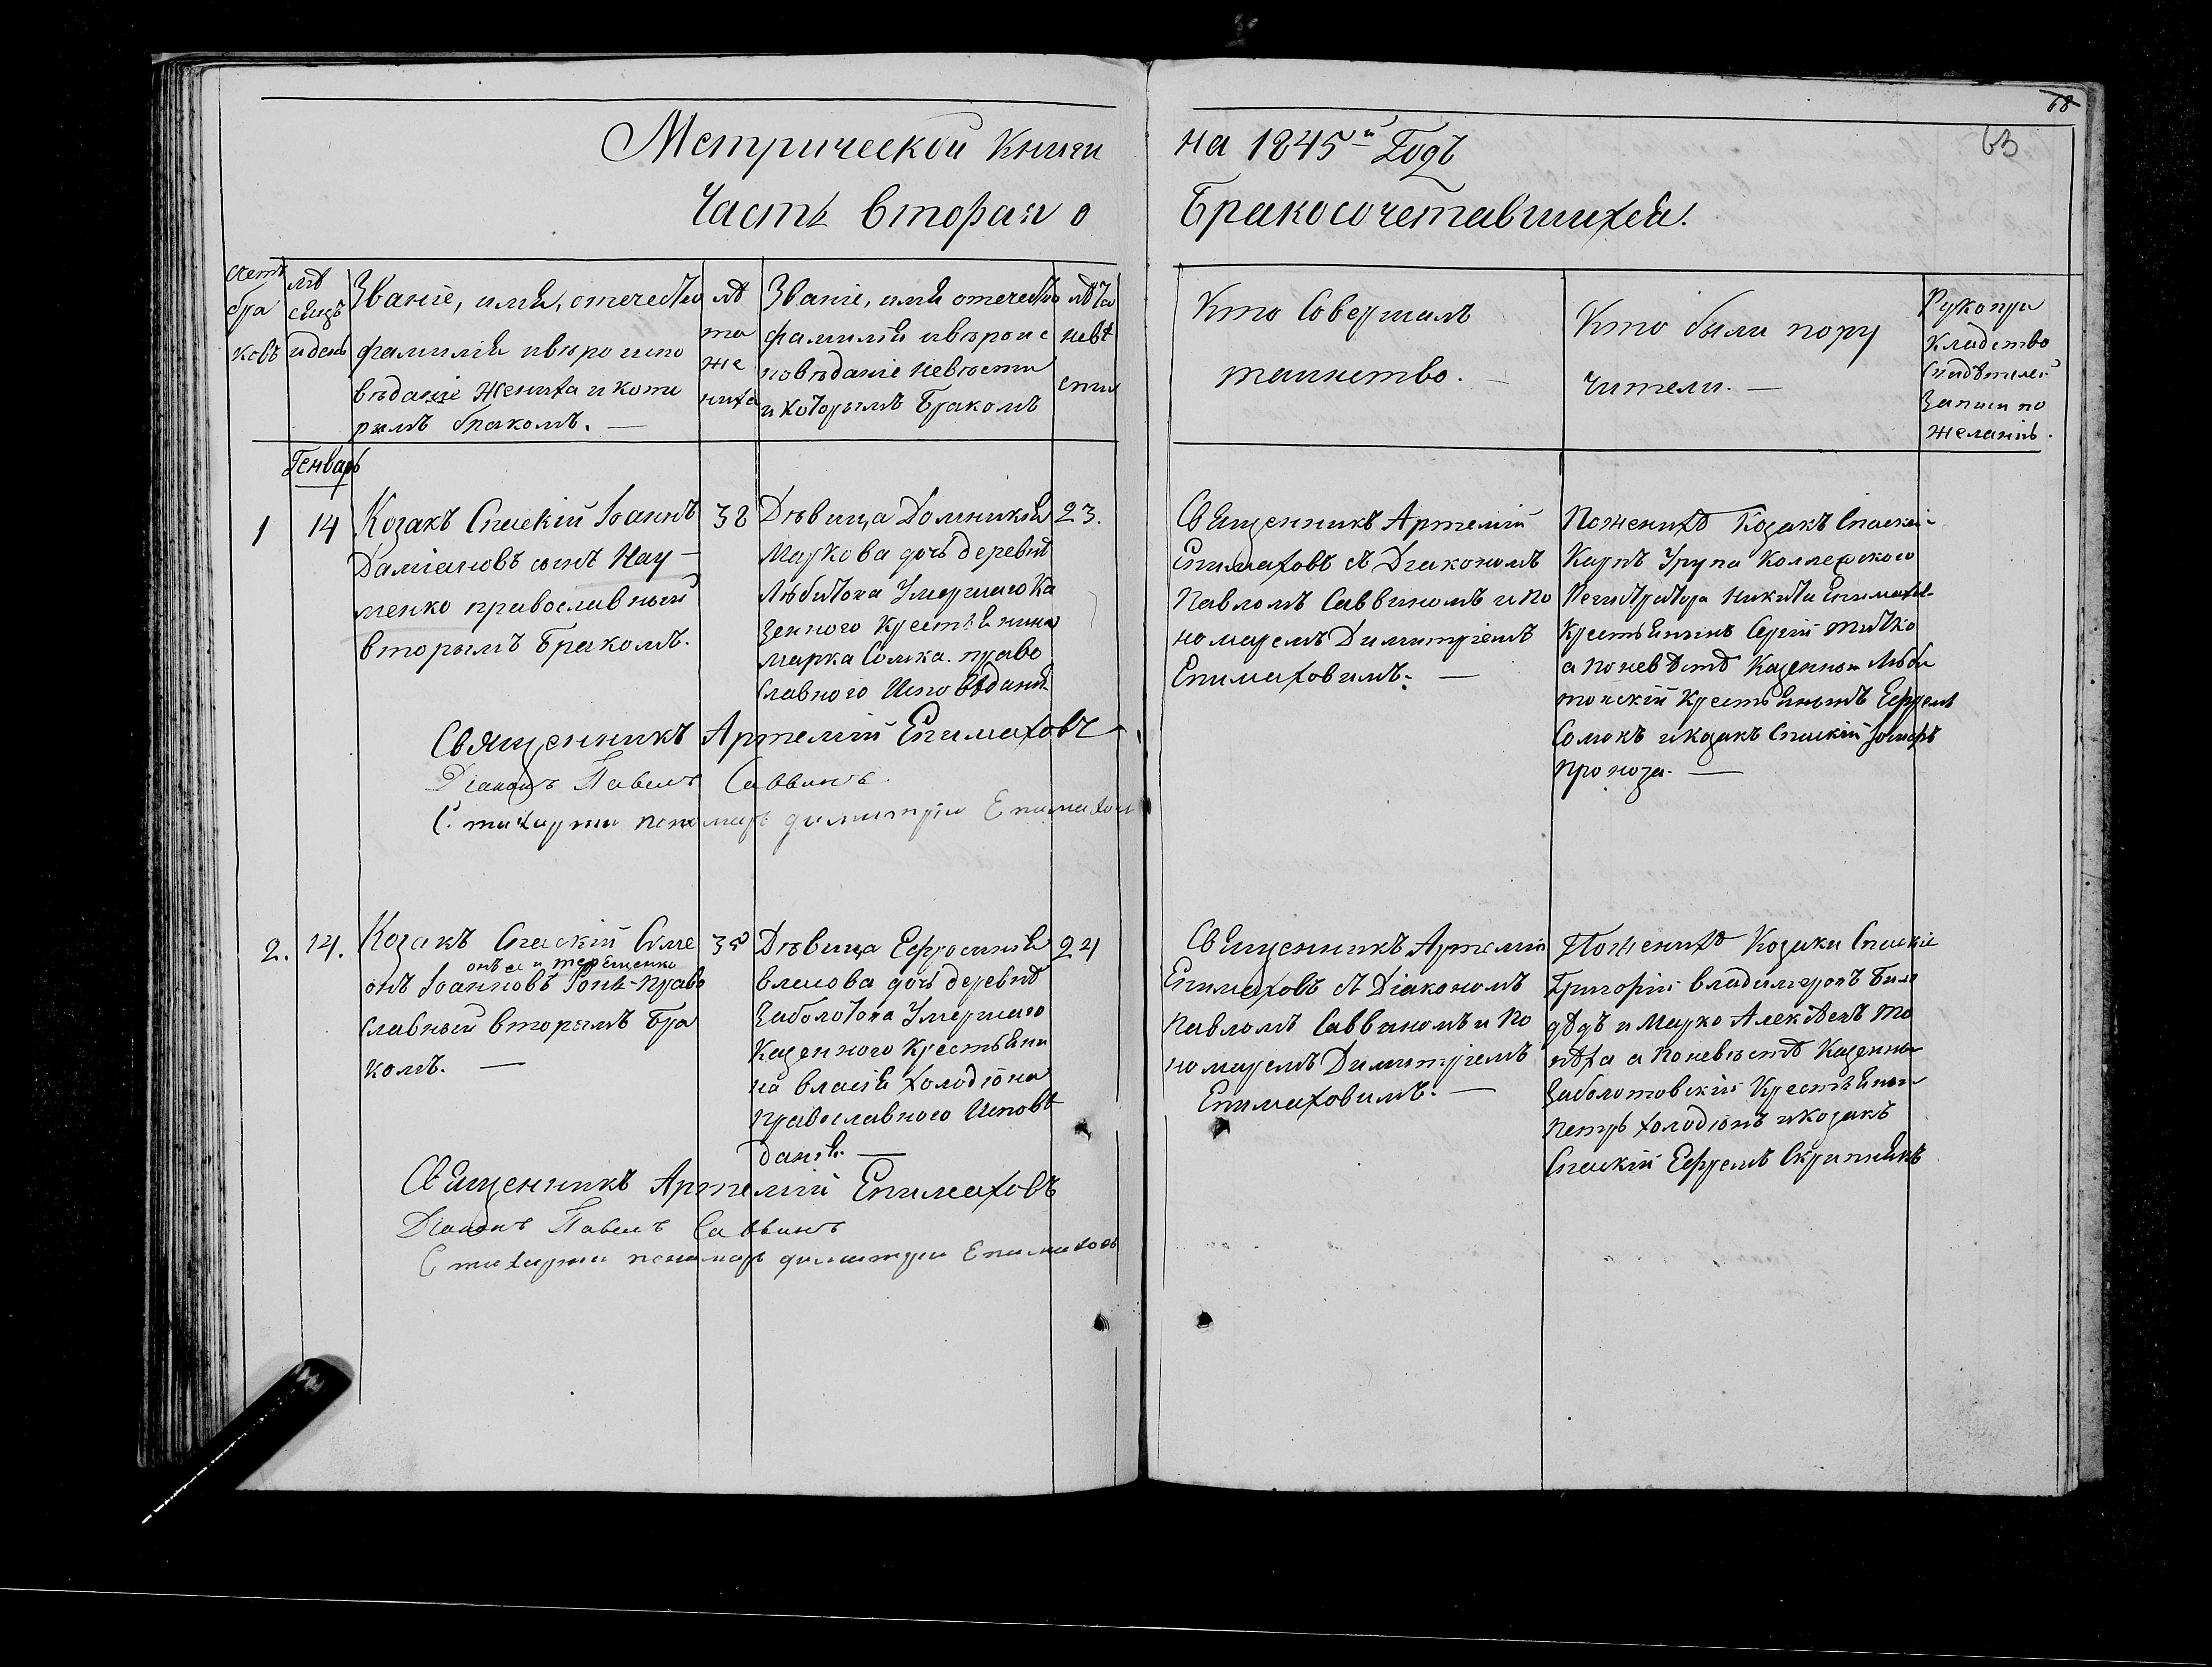 68
63
Метрической Книги на 1845й Годъ
Часть вторая о Бракосочетавшихся.
счетъ
бра
ковъ
мѣ
сяцъ
и день
Званіе, имя, отечество
фамилія и вѣро испо
вѣданіе жениха и кото
рымъ бракомъ. —
лѣ
та
же
ниха
Званіе, имя отечество
фамилія и вѣро ис
повѣданіе невѣсты
и которымъ Бракомъ
лѣта
невѣ
сты
Кто Совершалъ
таинство. —
Кто были пору
чители. —
Рукопри
кладство
Свидѣтелей
Записи по
желанію.
Генварь
1
14
Козакъ Спаскій Іоаннъ
Даміановъ сынъ Нау-
менко православный
вторымъ Бракомъ.
38
Дѣвица Домникія
Маркова дочь деревни
Любитова Умершаго Ка
зенного Крестьянина
Марка Сомка. право
славного Исповѣданія
23.
Священникъ Артемій
Епимаховъ съ Діакономъ
Павломъ Саввиномъ и По
номаремъ Димитріемъ
Епимаховимъ. —
По женихѣ Козакъ Спаскій
Карпъ Коллежского
Регистратора Никити
Крестьянинъ Сергій
а по невѣстѣ Казенный Люби
товскій Крестьянинъ Ефремъ
Сомокъ и Козакъ Спаскій Іосифъ
Проноза. —
Священникъ Артемій Епимаховъ
Діаконъ Павелъ Саввинъ.
Стихарни пономарь димитрій Епимахов
2.
14.
Козакъ Спаскій Симе
онъ же и терещенко
онъ Іоанновъ Сонъ-Право
славный вторымъ Бра
комъ. —
35
Дѣвица Ефросинія
Власова дочь деревнѣ
Заболотова Умершаго
Казенного Крестьяни
на Власія Холодіона
Православного Исповѣ
данія. —
24
Священникъ Артемій
Епимаховъ съ Діакономъ
Павломъ Саввиномъ и По
номаремъ Димитріемъ
Епимаховимъ. —
По женихѣ Козаки Спаскіе
Григорій Владимеровъ Били
дѣдъ и Марко Алексѣевъ То
пѣха а по невѣстѣ Казенный
Заболотовскій Крестьянинъ
Петръ Холодіонъ и Козакъ
Спаскій Ефремъ Скрипникъ
Священникъ Артемій Епимаховъ
Діаконъ Павелъ Саввинъ
Стихарни пономарь димитрій Епимаховъ